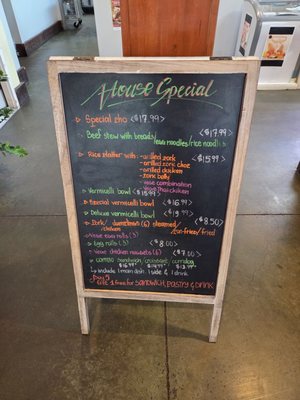 House Special
Special pho <$17.99>
Beef stew with breads/ <$17.99>
egg noodles/rice noodle
Rice platter with -grilled pork <$15.99>
-grilled pork chop
-grilled chicken
-pork belly
-vege combination
-vege thai chicken
Vermicelli bowl <$15.99>
Special vermicelli bowl <$16.99>
Deluxe vermicelli bowl <$19.99>
Pork/ dumplings (6) steamed/ <$8.50>
chicken pan-fried/fried
Vege egg rolls (3)
Egg rolls (3) <$8.00>
Vege chicken nuggets (6) <$7.00>
Combo sandwich/croissant/corndog
$16.99 $14.99 $13.99
↳ include 1 main dish, 1 side & 1 drink
Buy 5
get 1 free for SANDWICH, PASTRY & DRINK